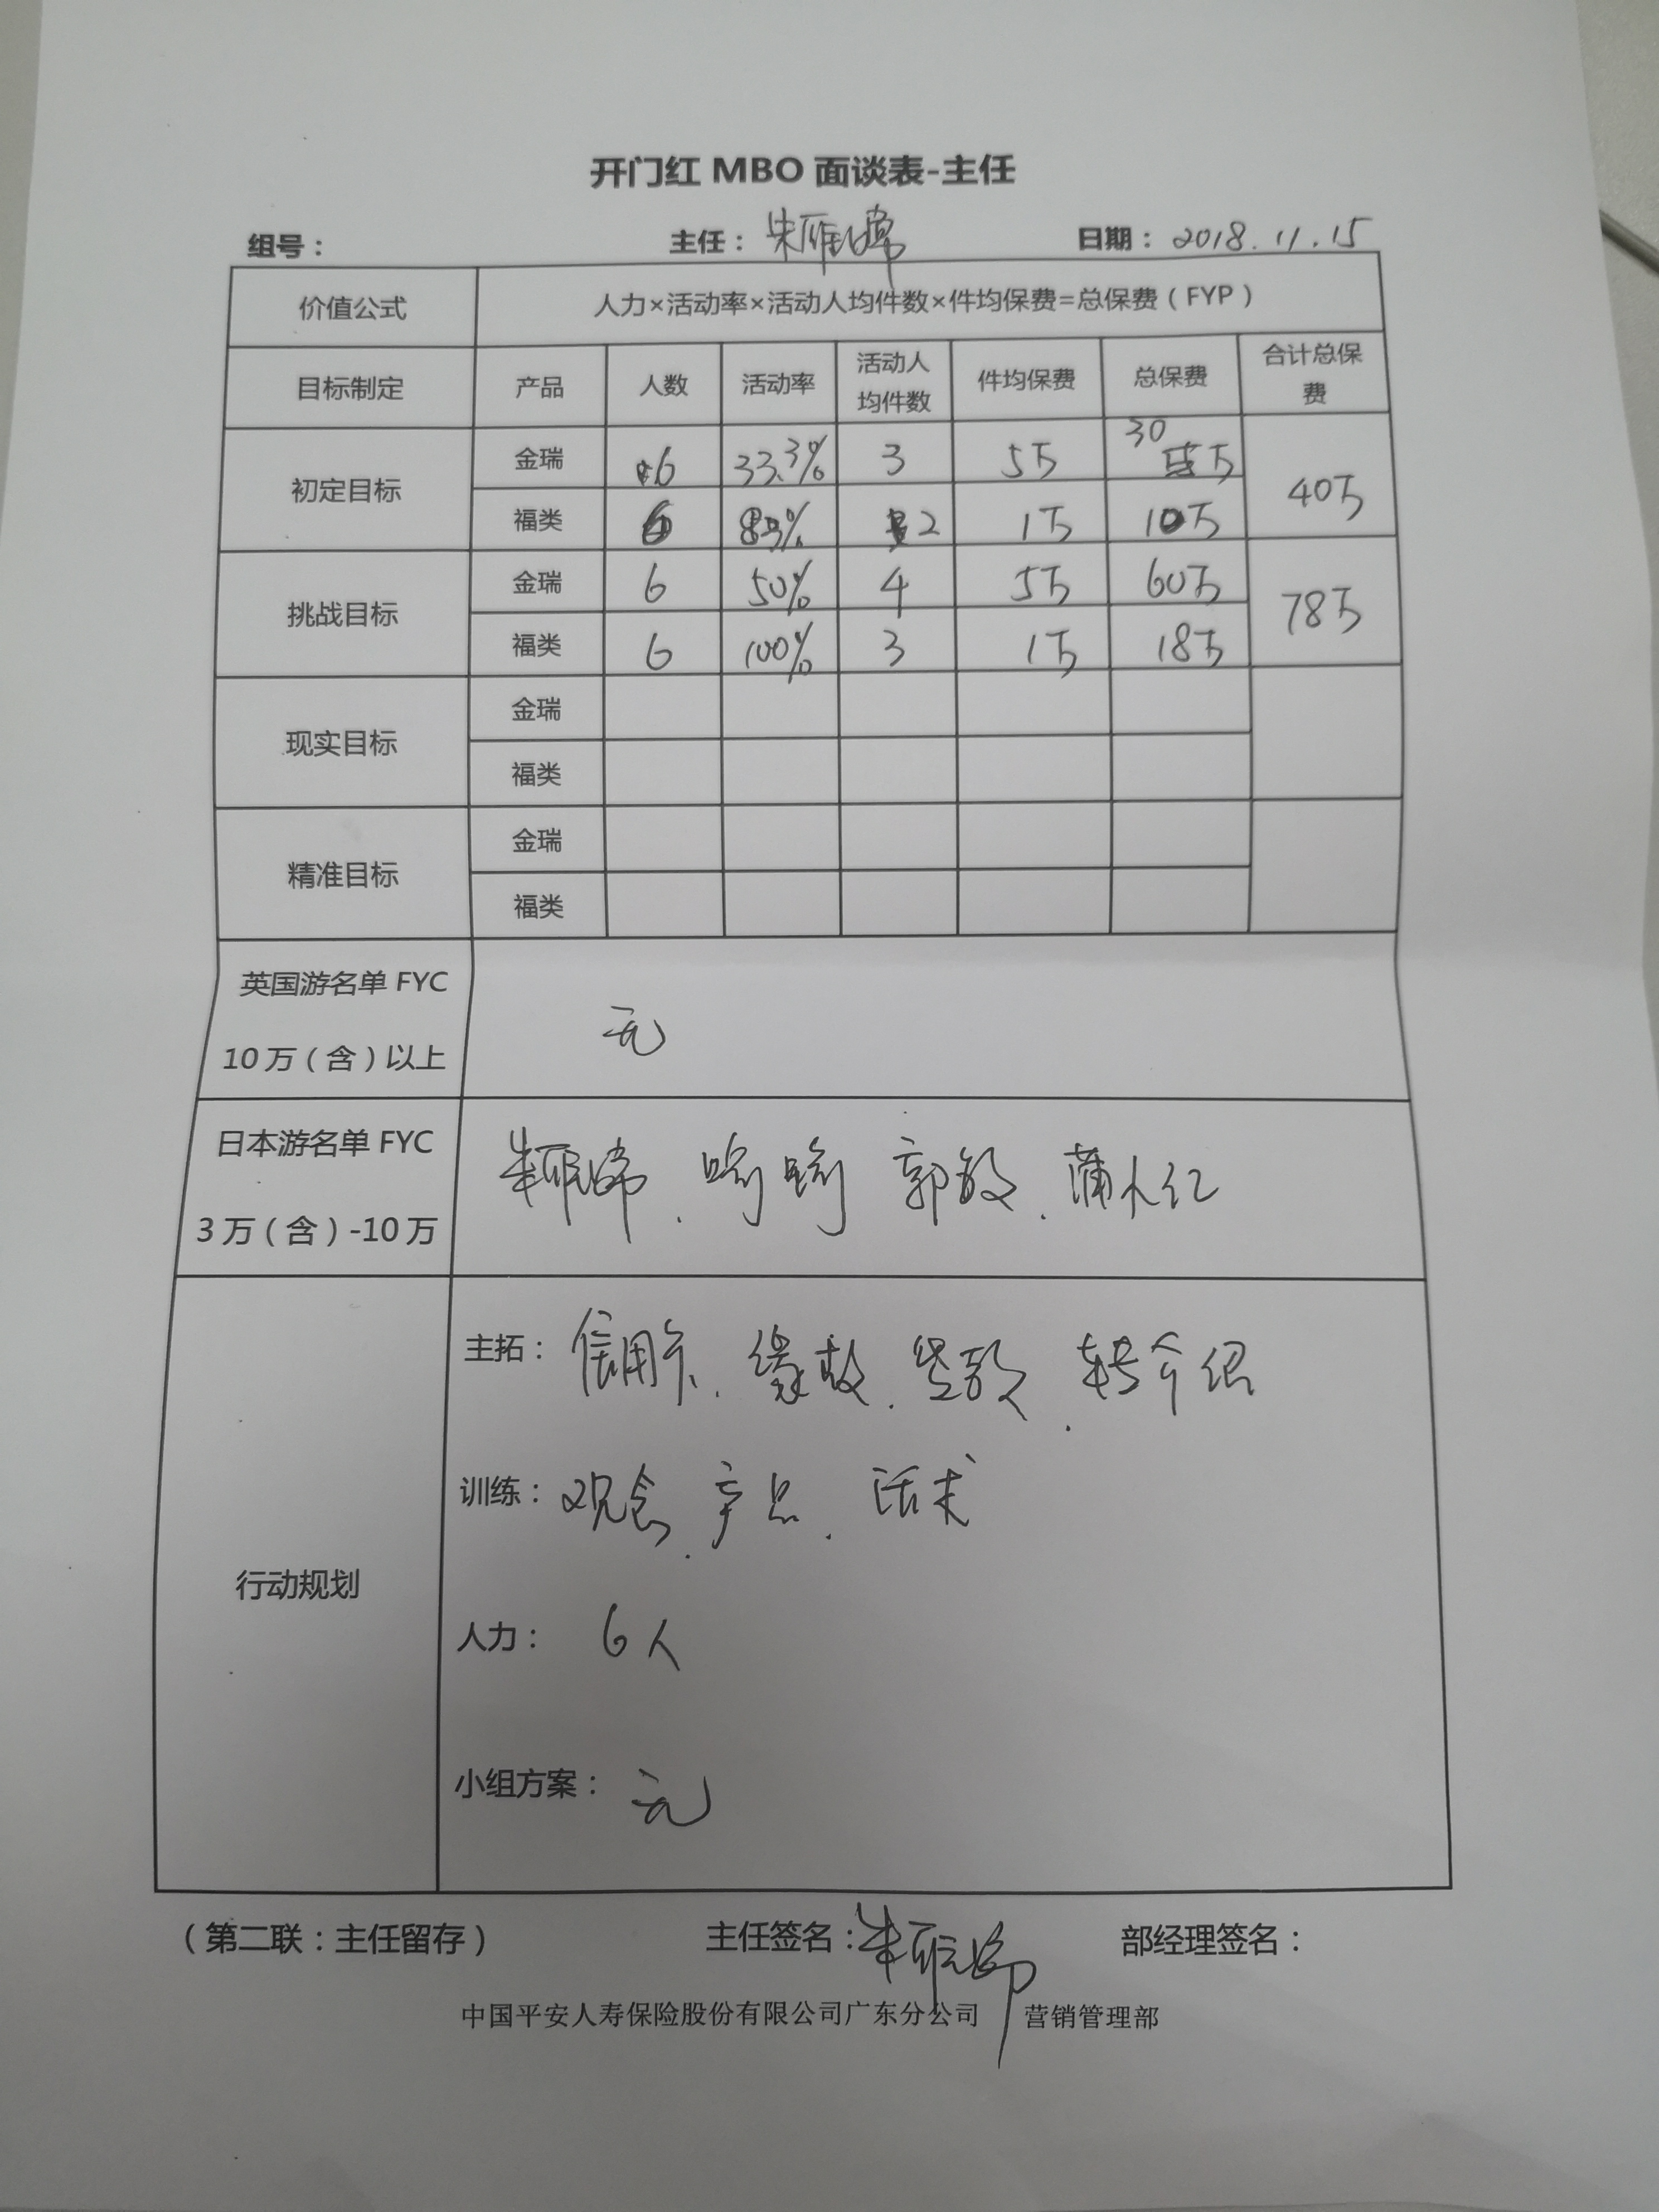 开门红 MBO 面谈表-主任
组号： 主任：朱雁 日期：2018.11.15
价值公式 人力×活动率×活动人均件数×件均保费=总保费（FYP）
目标制定 产品 人数 活动率 活动人均件数 件均保费 总保费 合计总保费
初定目标 金瑞 6 33.3% 3 5万 30万 40万
福类 6 83% 2 1万 10万
挑战目标 金瑞 6 50% 4 5万 60万 78万
福类 6 100% 3 1万 18万
现实目标 金瑞
福类
精准目标 金瑞
福类
英国游名单 FYC
10万（含）以上 无
日本游名单 FYC
3万（含）-10万 朱雁 郭敏、蒲水红
行动规划
主拓：信用卡、缘故、贷款、转介绍
训练：观念、产品、话术
人力：6人
小组方案：无
（第二联：主任留存） 主任签名：朱雁 部经理签名：
中国平安人寿保险股份有限公司广东分公司 营销管理部